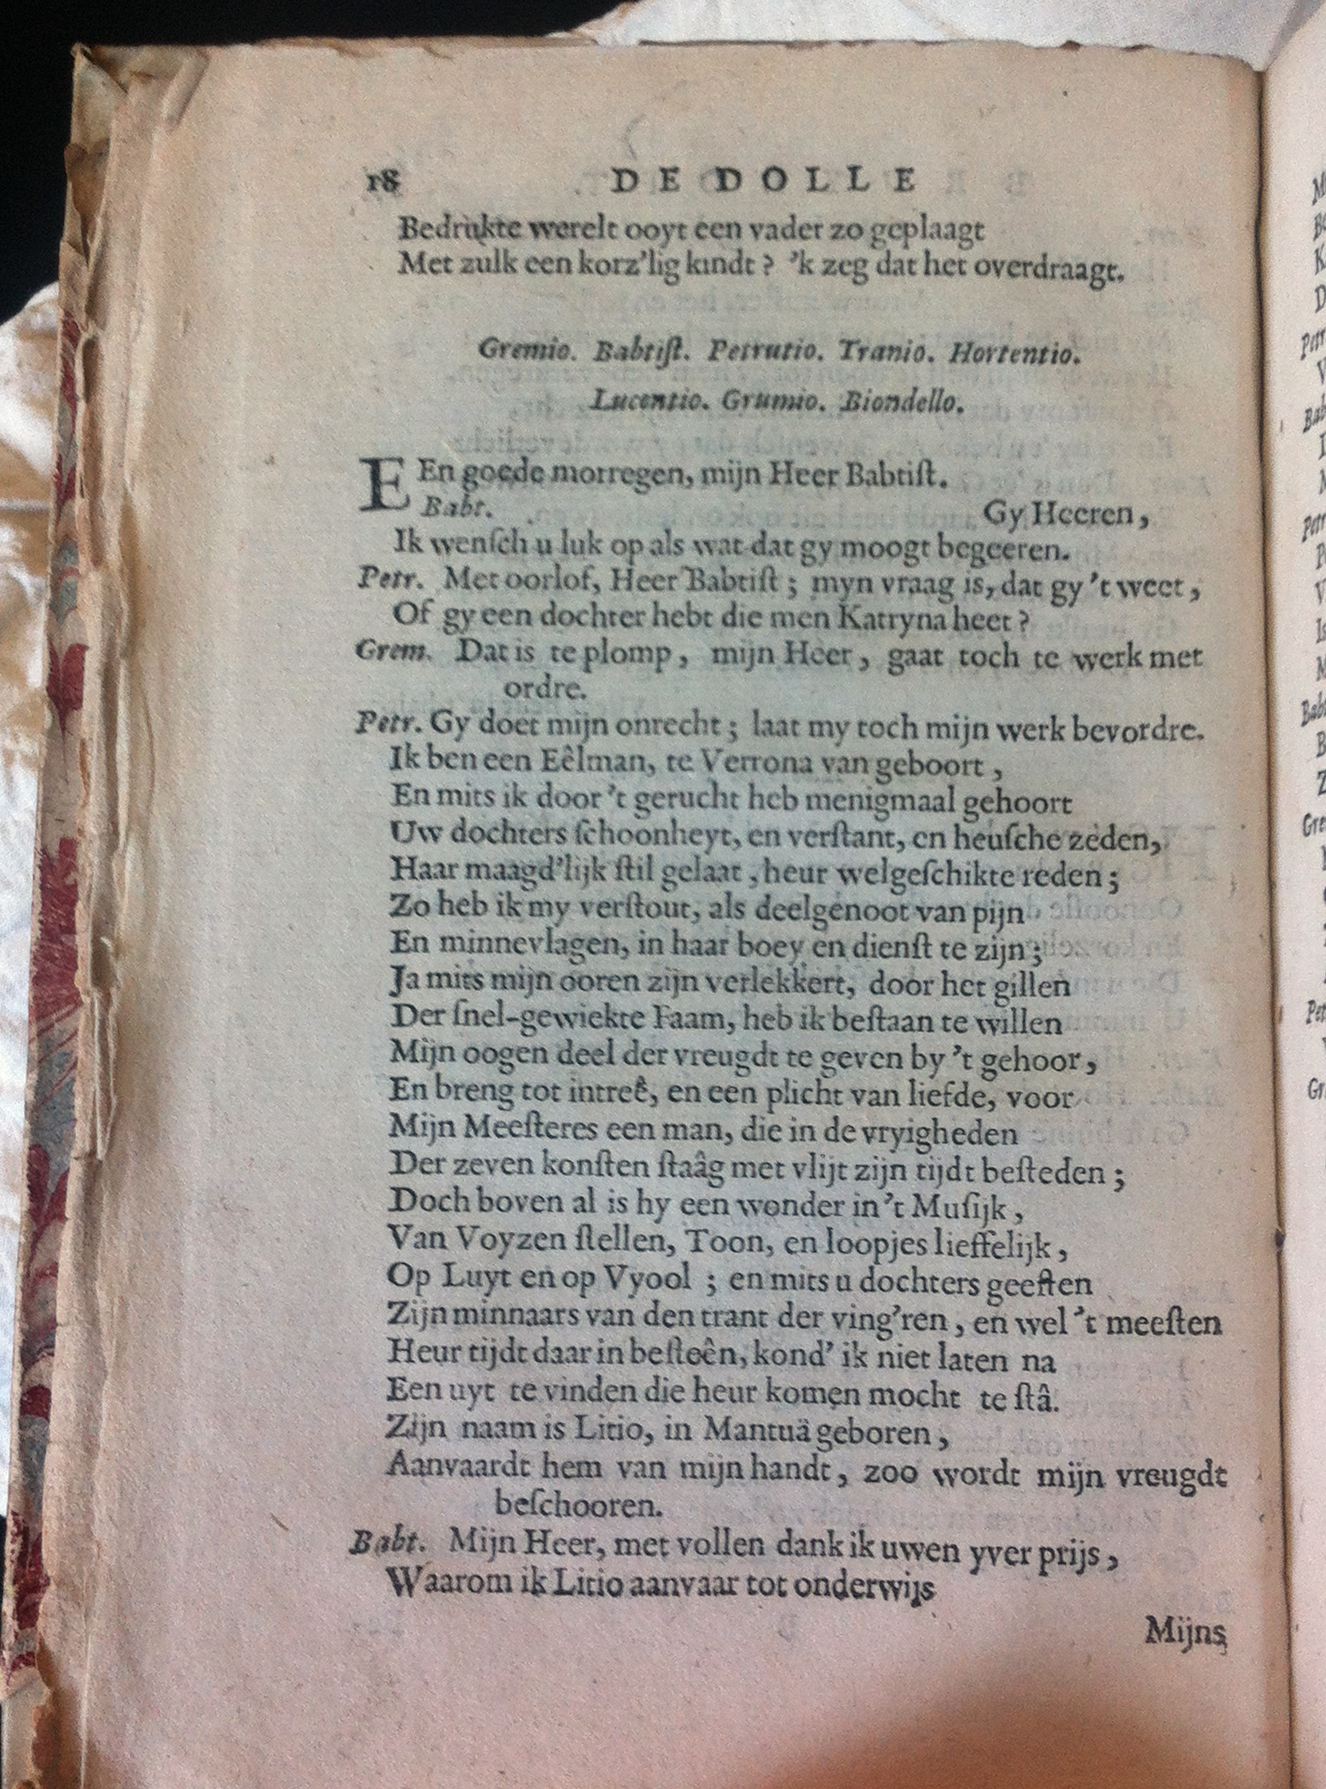 18 DE DOLLE
Bedrukte werelt ooyt een vader zo geplaagt
Met zulk een korz'lig kindt? 'k zeg dat het overdraagt.
Gremio. Babtiſt. Petrutio. Tranio. Hortentio.
Lucentio. Grumio. Biondello.
EEn goede morregen, mijn Heer Babtiſt.
Babt. Gy Heeren,
Ik wenſch u luk op als wat dat gy moogt begeeren.
Petr. Met oorlof, Heer Babtiſt; myn vraag is, dat gy 't weet,
Of gy een dochter hebt die men Katryna heet?
Grem. Dat is te plomp, mijn Heer, gaat toch te werk met
ordre.
Petr. Gy doet mijn onrecht; laat my toch mijn werk bevordre.
Ik ben een Eêlman, te Verrona van geboort,
En mits ik door 't gerucht heb menigmaal gehoort
Uw dochters ſchoonheyt, en verſtant, en heuſche zeden,
Haar maagd'lijk ſtil gelaat, heur welgeſchikte reden;
Zo heb ik my verſtout, als deelgenoot van pijn
En minnevlagen, in haar boey en dienſt te zijn;
Ja mits mijn ooren zijn verlekkert, door het gillen
Der ſnel-gewiekte Faam, heb ik beſtaan te willen
Mijn oogen deel der vreugdt te geven by 't gehoor,
En breng tot intreê, en een plicht van liefde, voor
Mijn Meeſteres een man, die in de vryigheden
Der zeven konſten ſtaâg met vlijt zijn tijdt beſteden;
Doch boven al is hy een wonder in 't Muſijk,
Van Voyzen ſtellen, Toon, en loopjes lieffelijk,
Op Luyt en op Vyool; en mits u dochters geeſten
Zijn minnaars van den trant der ving'ren, en wel 't meeſten
Heur tijdt daar in beſteên, kond' ik niet laten na
Een uyt te vinden die heur komen mocht te ſtâ.
Zijn naam is Litio, in Mantuä geboren,
Aanvaardt hem van mijn handt, zoo wordt mijn vreugdt
beſchooren.
Babt. Mijn Heer, met vollen dank ik uwen yver prijs,
Waarom ik Litio aanvaar tot onderwijs
Mijns